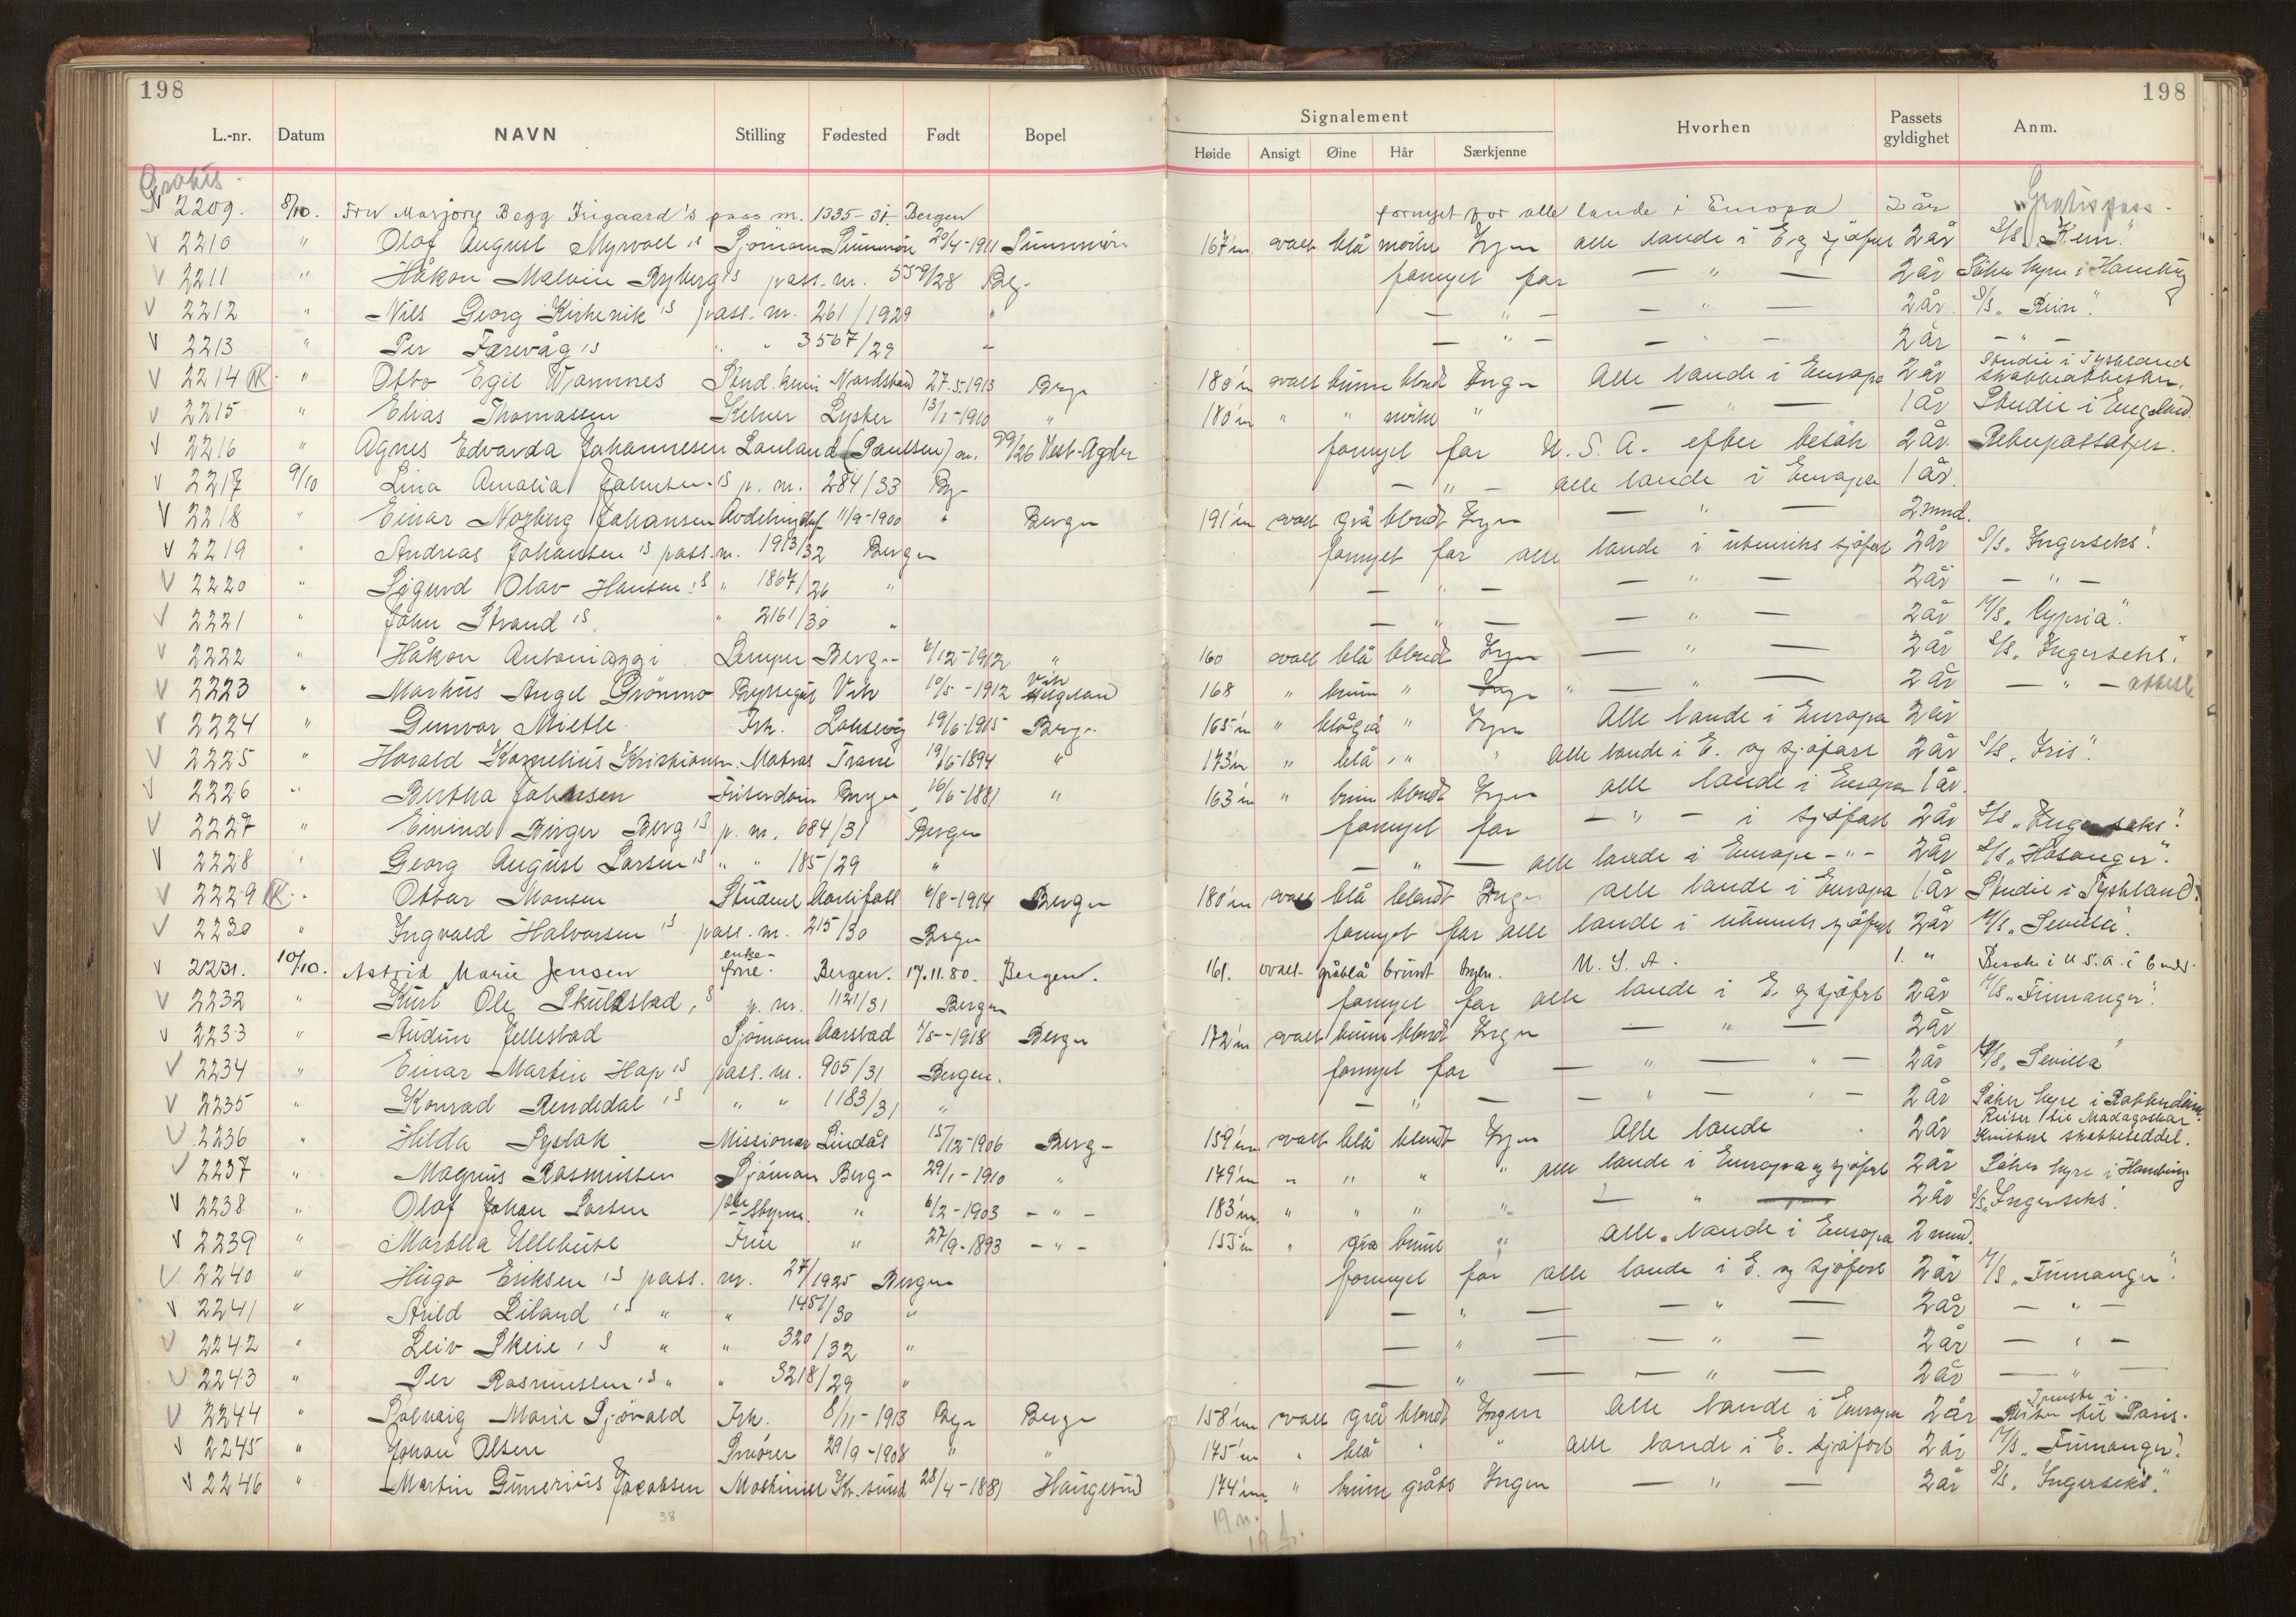 198
198
L.-nr. Datum NAVN Stilling Fødested Født Bopel
Signalement
Høide Ansigt Øine Hår Særkjenne Hvorhen Passets gyldighet Anm.
Gratis.
2209. 8/10. Fru Marjory Begg Frigaard's pass nr. 1335-31- Bergen fornyet for alle lande i Europa 2 år Gratispass.
2210 " Olaf August Myrvoll Sjömann Sunnmöre 20/4-1911 Sunnmöre 167 m ovalt blå mörke Ingen alle lande i E. og sjöfart 2 år S/S „Rein".
2211 " Håkon Malvin Ryberg's pass. nr. 559/28 Bg. fornyet for — " — 2 år Söker hyre i Hamburg
2212 " Nils Georg Kirkevik's pass. nr. 261/1929 " — " — — " — 2 år. S/S „Rein".
2213 " Per Færevåg's " " 3567/29 — — " — — " — 2 år — " —
2214 NK. " Otto Egil Wammes Stud. Nordstrand 27.5.1913 Berg. 180 m ovalt brune blondt Ingen Alle lande i Europa 2 år Studie i Tyskland skatteattest
2215 " Elias Thomassen Kelner Lyster 13/1-1910 " 180 m " " mörke " — " — 1 år Studie i England.
2216 " Agnes Edvarda Johannesen Lauland (Paulsen) nr. 99/26 Vest-Agder fornyet for U.S.A. efter besök 2 år. Returpassasjer.
2217 9/10 Lina Amalia Johnsen's p. nr. 284/33 Bg. — " — alle lande i Europa 1 år.
2218 " Einar Norberg Johansen Avdelingschef 11/9-1900 " Bergen 191 m ovalt grå blondt Ingen — " — 2 mnd.
2219 " Andreas Johansen's pass. nr. 1913/32 Bergen fornyet for alle lande i utenriks sjöfart 2 år S/S „Ingerseks".
2220 " Sigurd Olav Hansen's " 1867/26 " — " — — " — 2 år — " —
2221 " John Strand's " 2161/30 " — " — — " — 2 år M/S „Cypria".
2222 " Håkon Antoniazzi Lemper Bergen 6/12-1912 " 160 ovalt blå blondt Ingen — " — 2 år S/S „Ingerseks".
2223 " Markus Angel Grönmo Byssegut Vik 10/5-1912 Vik Helgeland 168 " brune " Ingen " — " — 2 år — " —
2224 " Gunvor Mietle Frk. Laksevåg 19/6-1915 Berg. 165 m " blågrå " Ingen Alle lande i Europa 2 år
2225 " Harald Kornelius Kristiansen. Matros Trane 19/6-1894 " 173 m " blå " " alle lande i E. og sjöfart 2 år S/S „Iris".
2226 " Bertha Johnsen Friserdame Bergen 16/6-1881 " 163 m " brune blondt Ingen alle lande i Europa 1 år.
2227 " Eivind Birger Berg's p. nr. 684/31 Bergen fornyet for — " — i sjöfart 2 år S/S „Ingerseks".
2228 " Georg August Larsen's " " 185/29 " — " — alle lande i Europa — " — 2 år S/S „Hosanger".
2229 NK. " Ottar Monsen Student 6/8-1914 Bergen 180 m ovalt blå blondt Ingen alle lande i Europa 1 år Studie i Tyskland.
2230 " Ingvald Halvorsen's pass. nr. 215/30 Bergen fornyet for alle lande i utenriks sjöfart 2 år M/S „Sevilla".
2231. 10/10. Astrid Marie Jensen enke-frue. Bergen. 17.11.80. Bergen. 161. ovalt gråblå brunt Ingen. U.S.A. 1. " Besök i U.S.A. i 6 mdr.
2232 " Kurt Ole Skulstad's p. nr. 1121/31 Bergen fornyet for alle lande i E. og sjöfart 2 år M/S „Finnanger".
2233 " Audun Jellestad Sjömann Aarstad 1/5-1918 Bergen 172 m ovalt brune blondt Ingen — " — 2 år
2234 " Einar Martin Hop's pass. nr. 905/31 Bergen. fornyet for — " — " — 2 år M/S „Sevilla"
2235 " Konrad Rendedal's " " 1183/31 " — " — — " — " — 2 år Söker hyre i Rotterdam
2236 " Hilda Syslak Missionær Lindås 15/12-1906 Berg- 159 m ovalt blå blondt Ingen Alle lande 2 år Reiser til Madagaskar. Kvittert skatteseddel.
2237 " Magnus Rasmussen Sjöman Berg- 29/1-1910 " 179 m " " " " alle lande i Europa og sjöfart 2 år Söker hyre i Hamburg
2238 " Olaf Johan Larsen 1ste Styrm. " 6/2-1903 — " — 183 m. " " " " — " — 2 år S/S „Ingerseks".
2239 " Martha Ullebust Frue " 27/9-1893 — " — 155 m " grå brune " alle lande i Europa 2 mnd.
2240 " Hugo Eriksen's pass. nr. 27/1925 Bergen fornyet for alle lande i E. og sjöfart 2 år M/S „Finnanger".
2241 " Arild Liland's " " 1451/30 " — " — — " — 2 år — " —
2242 " Leiv Skeie's " " 320/32 " — " — — " — 2 år — " —
2243 " Per Rasmussen's " " 3218/29 " — " — — " — 2 år — " —
2244 " Solveig Marie Sjövold Frk. 8/11-1913 Bgn Bergen 158 m ovalt grå blondt Ingen Alle lande i Europa 2 år Reiser til Paris. Tjeneste i
2245 " Johan Olsen Smörer 29/9-1908 " " 175 m " blå " " alle lande i E. sjöfart 2 år M/S „Finnanger".
2246 " Martin Gunerius Jacobsen Maskinist Kr.sund 28/4-1881 Haugesund 174 m. " brune gråts Ingen — " — 2 år S/S „Ingerseks."
38
19 m.
19 k.